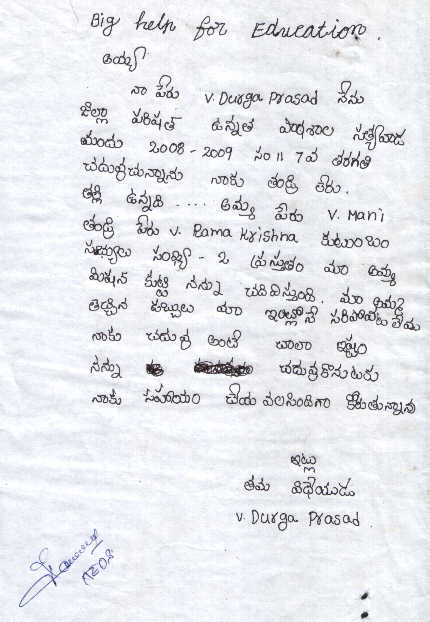 Big help for Education.
అయ్యా
నా పేరు V. Durga Prasad నేను
జిల్లా పరిషత్ ఉన్నత పాఠశాల సత్యవాడ
నుందు 2008-2009 సం॥ 7వ తరగతి
చదువుచున్నాను నాకు తండ్రి లేరు.
తల్లి ఉన్నది .... అమ్మ పేరు V. Mani
తండ్రి పేరు V. Rama Krishna కుటుంబం
సభ్యులు సంఖ్య - 2 ప్రస్తుతం మా అమ్మ
మిషన్ కుట్టి నన్ను చదివిస్తుంది. మా అమ్మ
తెచ్చిన డబ్బులు మా ఇంట్లోనే సరిపోవటం లేదు
నాకు చదువు అంటే చాలా ఇష్టం
నన్ను చదువుకొనుటకు
నాకు సహాయం చేయ వలసిందిగా కోరుతున్నాను
ఇట్లు
తమ విధేయుడు
V. Durga Prasad.